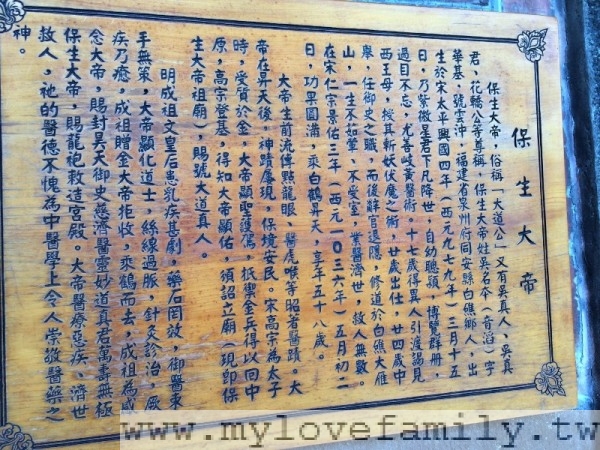 保生大帝
保生大帝，俗稱「大道公」又有吳真人、吳真
君、花轎公等尊稱，保生大帝姓吳名夲（音滔）字
華基，號雲沖，福建省泉州府同安縣白礁鄉人，出
生於宋太平興國四年（西元九七九年）三月十五
日，乃紫微星君下凡降世，自幼聰穎，博覽群册，
過目不忘，尤善岐黃醫術。十七歲得異人引渡謁見
西王母，授其斬妖伏魔之術，廿歲出仕，廿四歲中
舉，任御史之職，而後辭官退隱，修道於白礁大雁
山，一生不如葷、不愛室，業醫濟世，救人無數。
在宋仁宗景佑三年（西元一０三六年）五月初二
日，功果圓滿，乘白鶴昇天，享年五十八歲。
大帝生前流傳點龍眼、醫虎喉等昭著醫蹟。大
帝在昇天後，神蹟屢現，保境安民。宋高宗為太子
時，受質於金，大帝顯聖護駕，抵禦金兵得以回中
原，高宗登基，得知大帝顯佑，須詔立廟（現即保
生大帝祖廟），賜號大道真人。
明成祖文皇后患乳疾甚劇，藥石罔效，御醫束
手無策，大帝顯化道士，絲線過脈，針灸診治，厥
疾乃癒，成祖贈金大帝拒收，乘鶴而去，成祖為感
念大帝，賜封昊天御史慈濟醫靈妙道真君萬壽無極
保生大帝，賜龍袍敕造宮殿。大帝醫療惡疾、濟世
救人，祂的醫德不愧為中醫學上令人崇敬醫藥之
神。
www.mylovefamily.tw